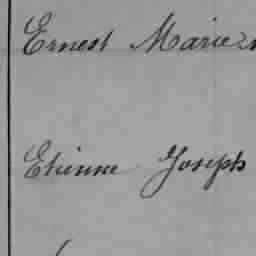 Ernest Marie
Etienne Joseph